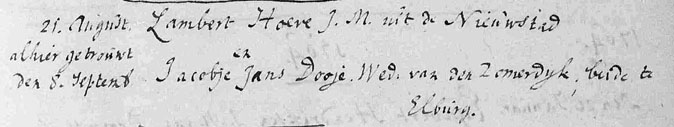 21. August. Lambert Hoeve J. M. uit de Nieuwstad
alhier getrouwt en
den 8. Septemb Jacobje Jans Dooje. Wed. van den Zomerdyk, beide te
Elburg.